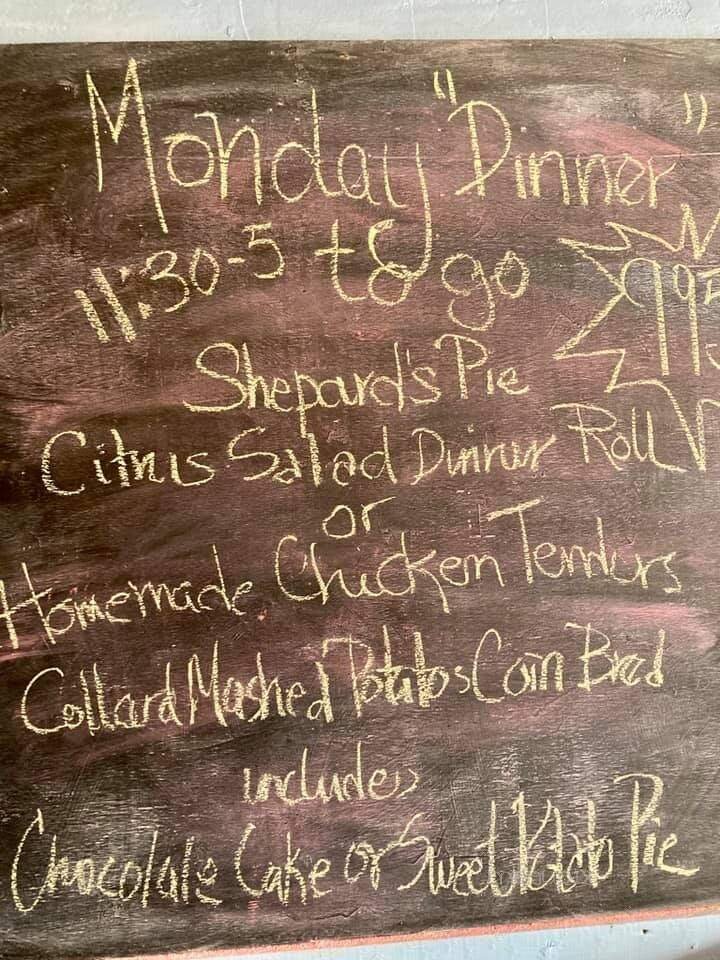 Monday "Dinner"
11:30-5 to go
Shepard's Pie
Citrus Salad Dinner Roll
or
Homemade Chicken Tenders
Collard Mashed Potatos Corn Bread
includes
Chocolate Cake or Sweet Potato Pie